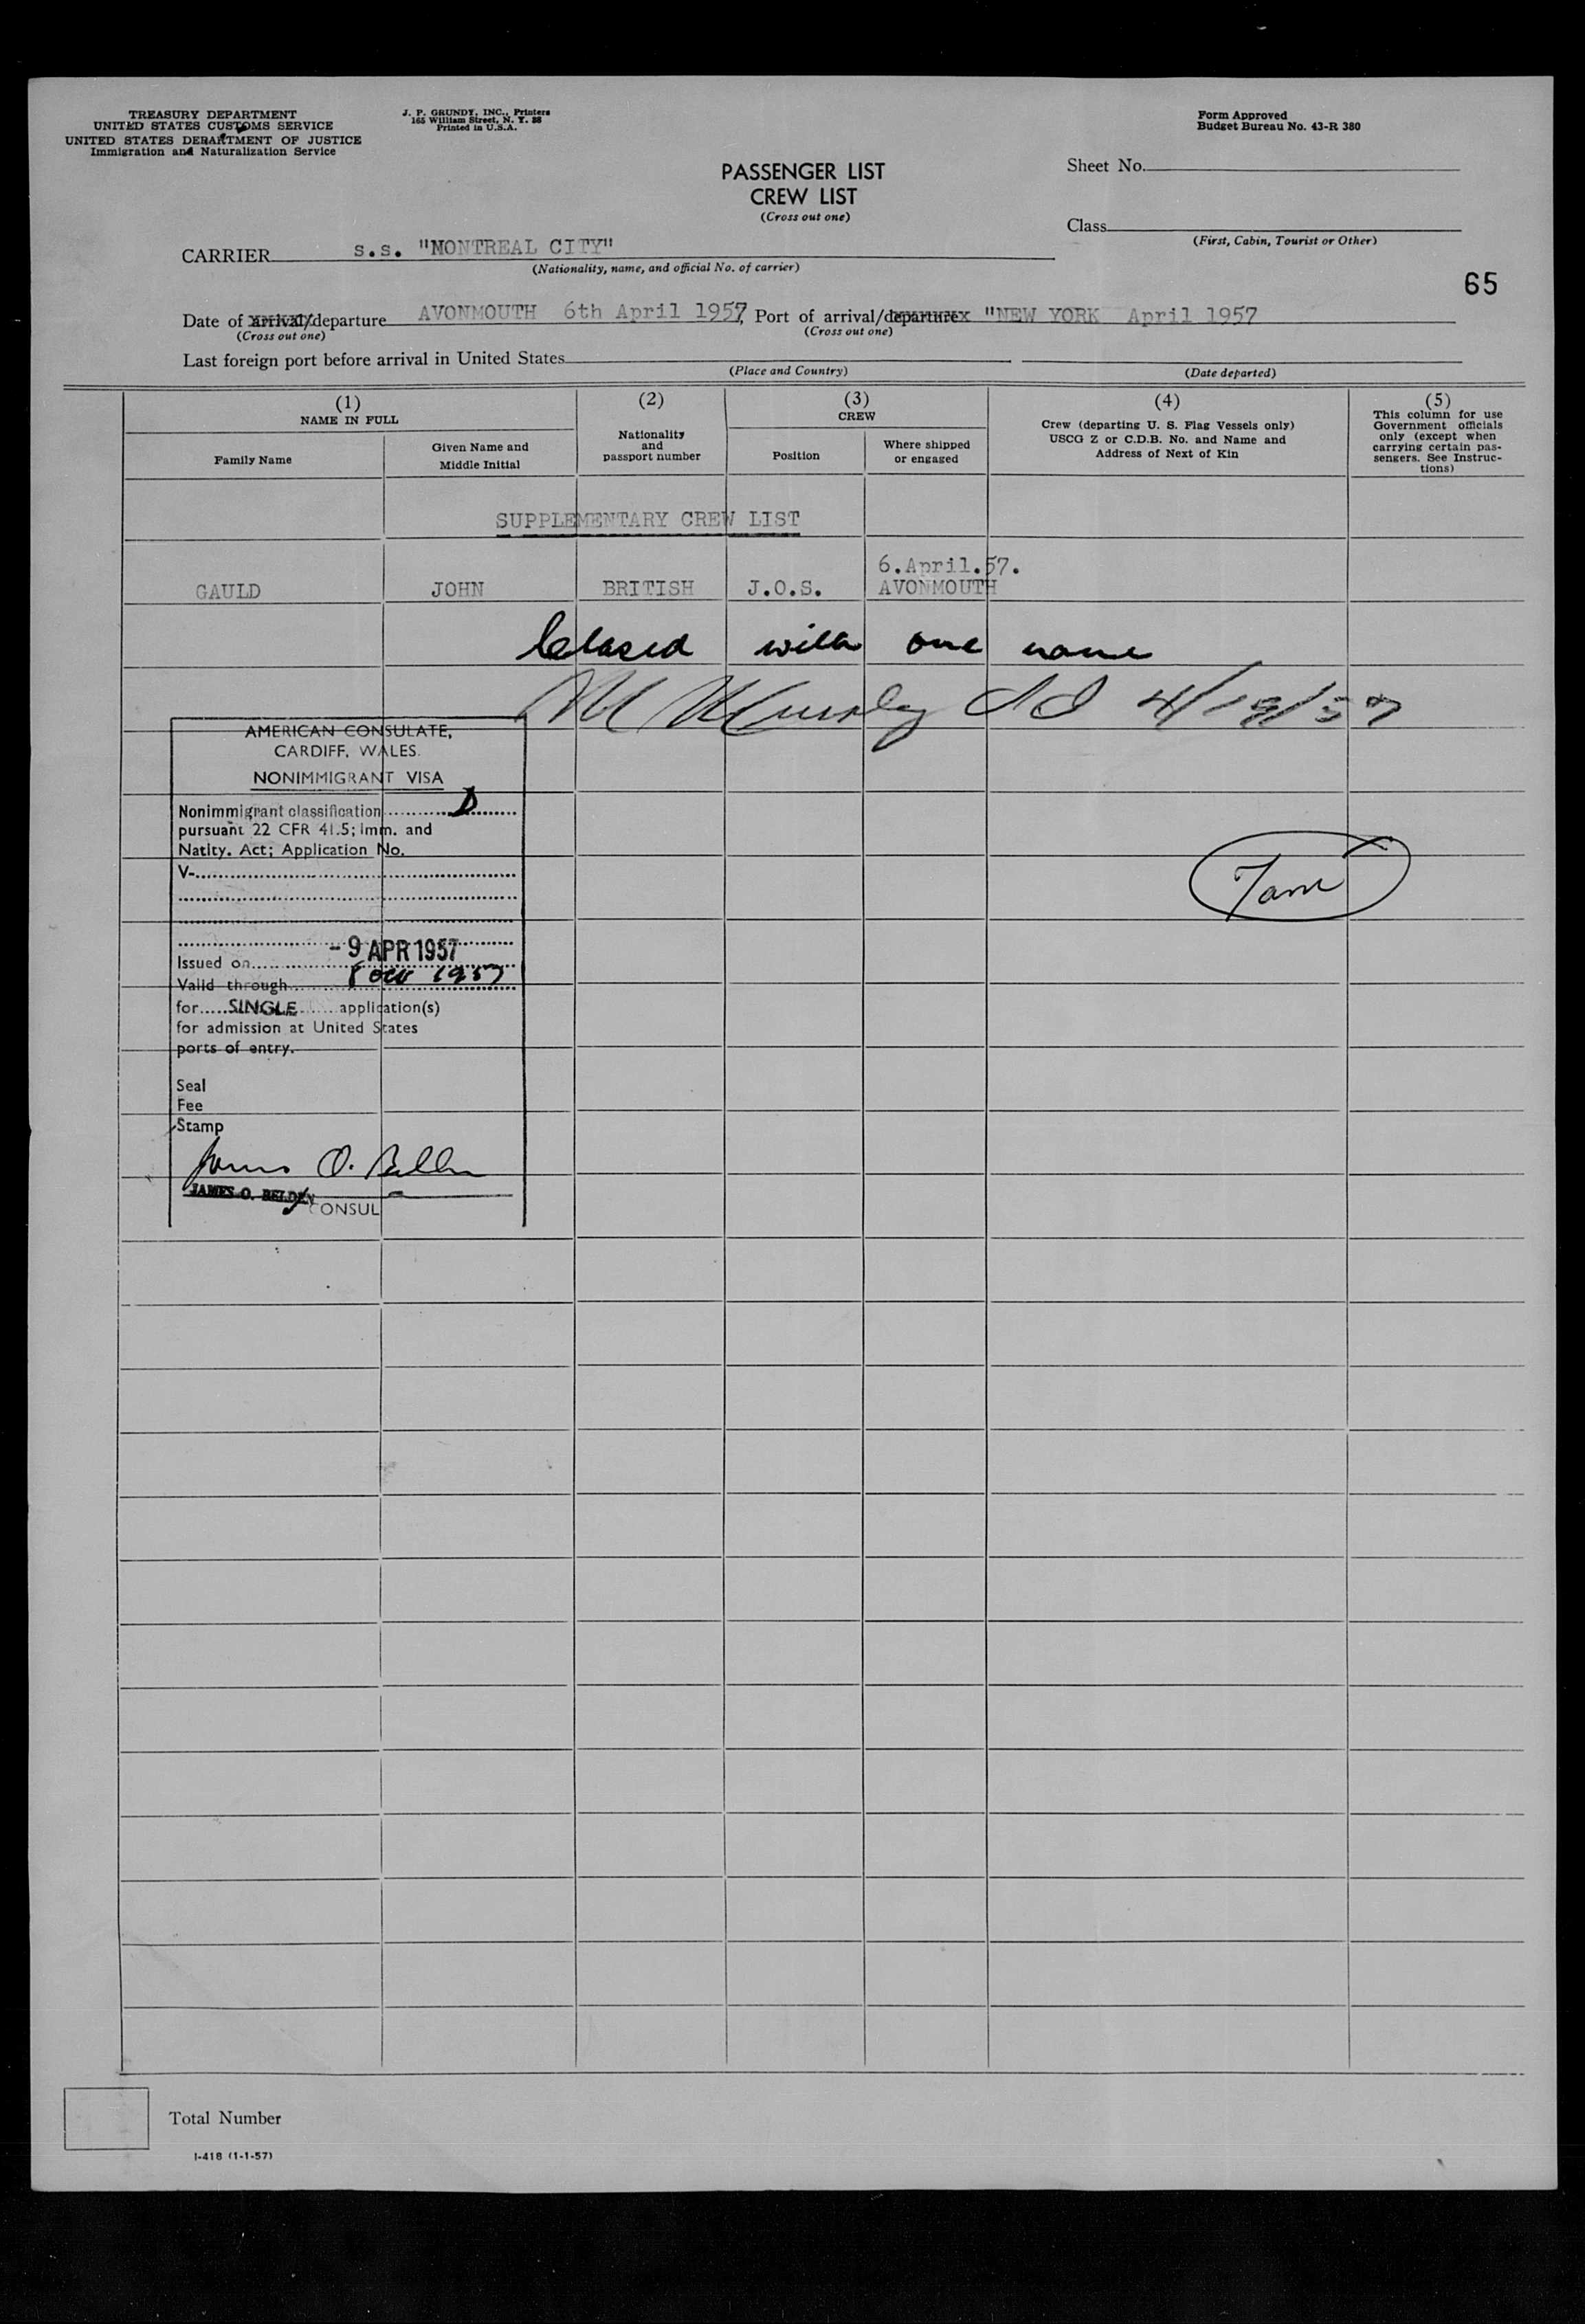 TREASURY DEPARTMENT
UNITED STATES CUSTOMS SERVICE
UNITED STATES DEPARTMENT OF JUSTICE
Immigration and Naturalization Service
J. P. GRUNDY, INC., Printers
165 William Street, N. Y. 38
Printed in U.S.A.
Form Approved
Budget Bureau No. 43-R 380
PASSENGER LIST
CREW LIST
(Cross out one)
Sheet No.
Class
(First, Cabin, Tourist or Other)
CARRIER s.s. "MONTREAL CITY"
(Nationality, name, and official No. of carrier)
65
Date of arrival/departure AVONMOUTH 6th April 1957, Port of arrival/departure "NEW YORK April 1957
(Cross out one) (Cross out one)
Last foreign port before arrival in United States
(Place and Country) (Date departed)
(1) NAME IN FULL
Family Name
Given Name and Middle Initial
(2)
Nationality and passport number
(3) CREW
Position
Where shipped or engaged
(4)
Crew (departing U. S. Flag Vessels only)
USCG Z or C.D.B. No. and Name and
Address of Next of Kin
(5)
This column for use
Government officials
only (except when
carrying certain pas-
sengers. See Instruc-
tions)
SUPPLEMENTARY CREW LIST
6.April.57.
GAULD JOHN BRITISH J.O.S. AVONMOUTH
Closed with one name
4/19/57
AMERICAN CONSULATE,
CARDIFF, WALES.
NONIMMIGRANT VISA
Nonimmigrant classification D
pursuant 22 CFR 41.5; Imm. and
Natity. Act; Application No.
V-
Issued on -9 APR 1957
Valid through 1957
for SINGLE application(s)
for admission at United States
ports of entry.
Seal
Fee
Stamp
James O. Belden
JAMES O. BELDEN
CONSUL
Total Number
I-418 (1-1-57)